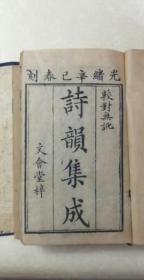 光緒辛巳春刻
較對無訛
詩韻集成
文會堂梓